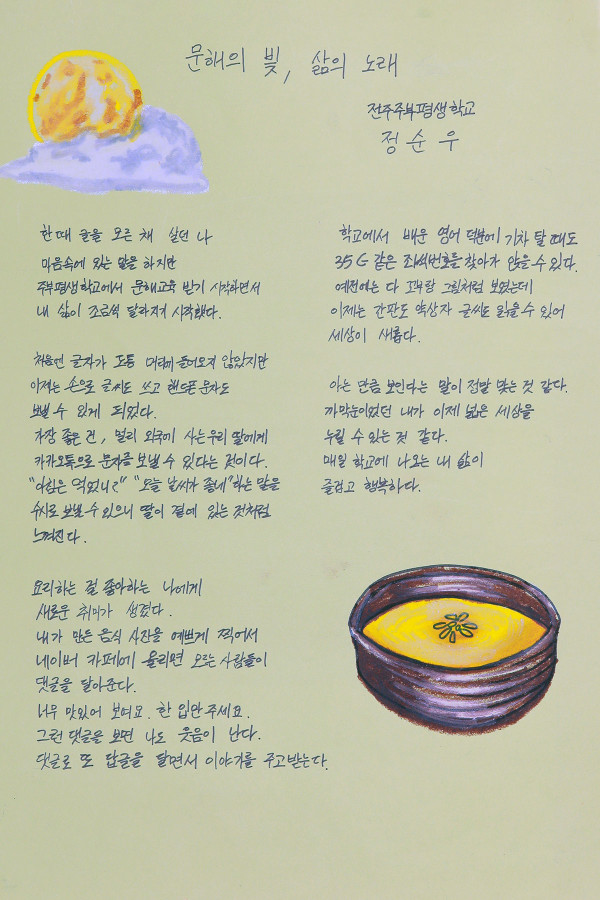 문해의 빛, 삶의 노래
전주주부평생학교
정순우
한때 글을 모른 채 살던 나
마음속에 있는 말을 하지만
주부평생학교에서 문해교육 받기 시작하면서
내 삶이 조금씩 달라지기 시작했다.
처음엔 글자가 도통 머리에 들어오지 않았지만
이제는 손으로 글씨도 쓰고 핸드폰 문자도
보낼 수 있게 되었다.
가장 좋은 건, 멀리 외국에 사는 우리 딸에게
카카오톡으로 문자를 보낼 수 있다는 것이다.
"아침은 먹었니?" "오늘 날씨가 좋네"하는 말을
수시로 보낼 수 있으니 딸이 곁에 있는 것처럼
느껴진다.
요리하는 걸 좋아하는 나에게
새로운 취미가 생겼다.
내가 만든 음식 사진을 예쁘게 찍어서
네이버 카페에 올리면 모르는 사람들이
댓글을 달아준다.
너무 맛있어 보여요. 한 입만 주세요.
그런 댓글을 보면 나도 웃음이 난다.
댓글로 또 답글을 달면서 이야기를 주고받는다.
학교에서 배운 영어 덕분에 기차 탈 때도
35G 같은 좌석번호를 찾아가 앉을 수 있다.
예전에는 다 그림처럼 보였는데
이제는 간판도 역상자 글씨도 읽을 수 있어
세상이 새롭다.
아는 만큼 보인다는 말이 정말 맞는 것 같다.
까막눈이었던 내가 이제 넓은 세상을
누릴 수 있는 것 같다.
매일 학교에 나오는 내 삶이
즐겁고 행복하다.